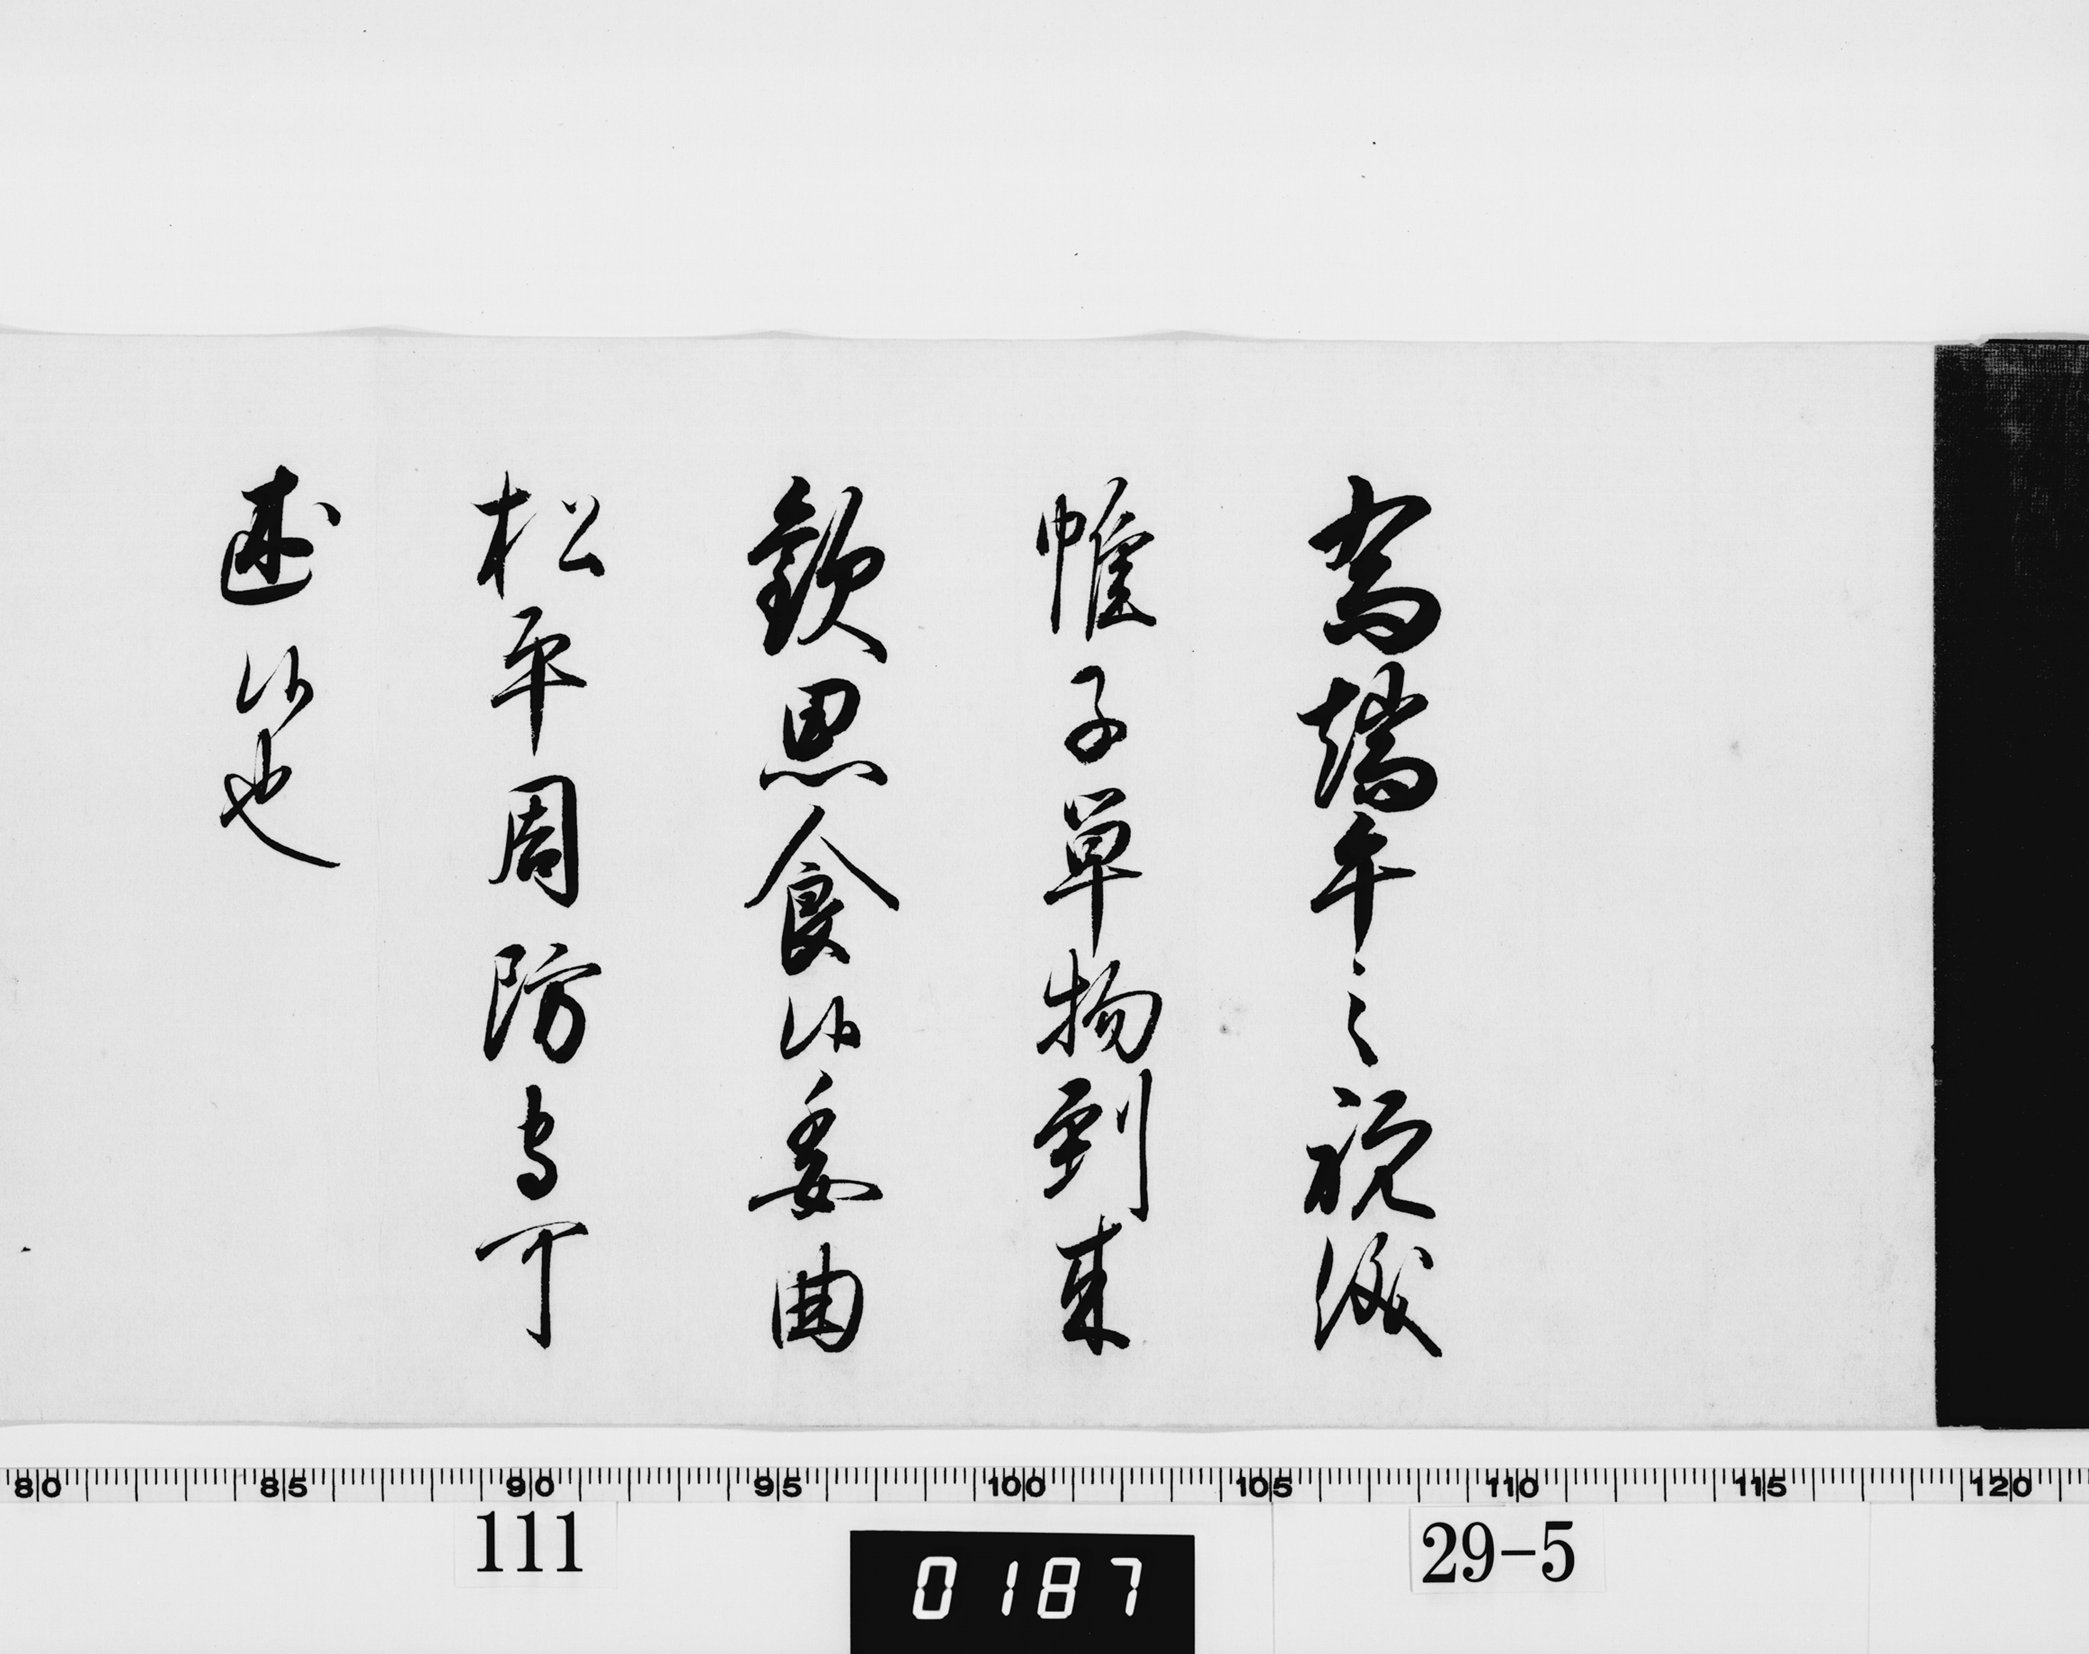 為端午之祝儀
帷子單物到来
歓思食候委曲
松平周防守可
述候也
80 85 90 95 100 105 110 115 120
111
0187
29-5